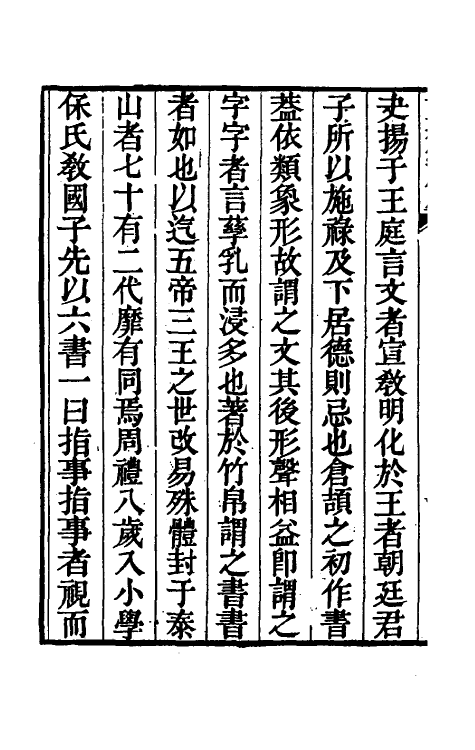 夬揚于王庭言文者宣敎明化於王者朝廷君
子所以施祿及下居德則忌也倉頡之初作書
葢依類象形故謂之文其後形聲相益卽謂之
字字者言孳乳而浸多也著於竹帛謂之書書
者如也以迄五帝三王之世改易殊體封于泰
山者七十有二代靡有同焉周禮八歲入小學
保氏敎國子先以六書一曰指事指事者視而